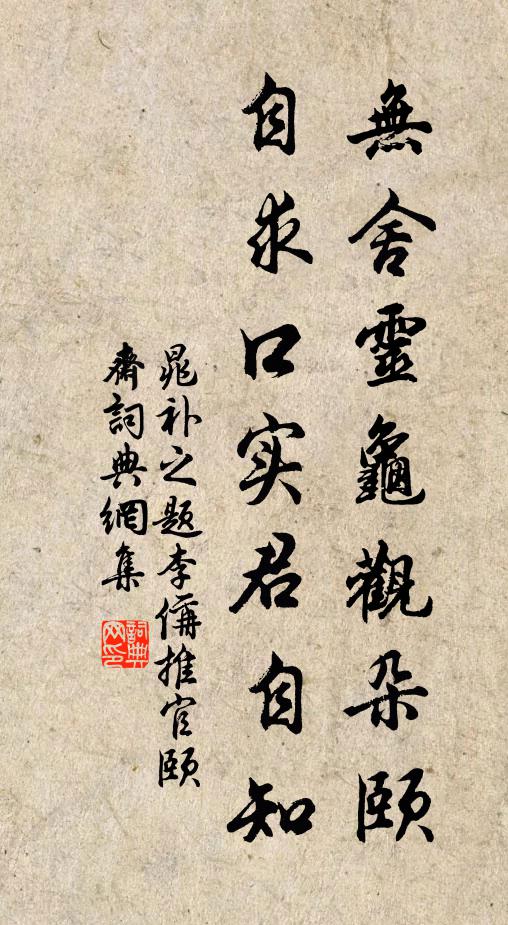 無舍靈龜觀朵頤
自求口实君自知
晁补之题李偁推官頤
齋詞典網集
詞典网印